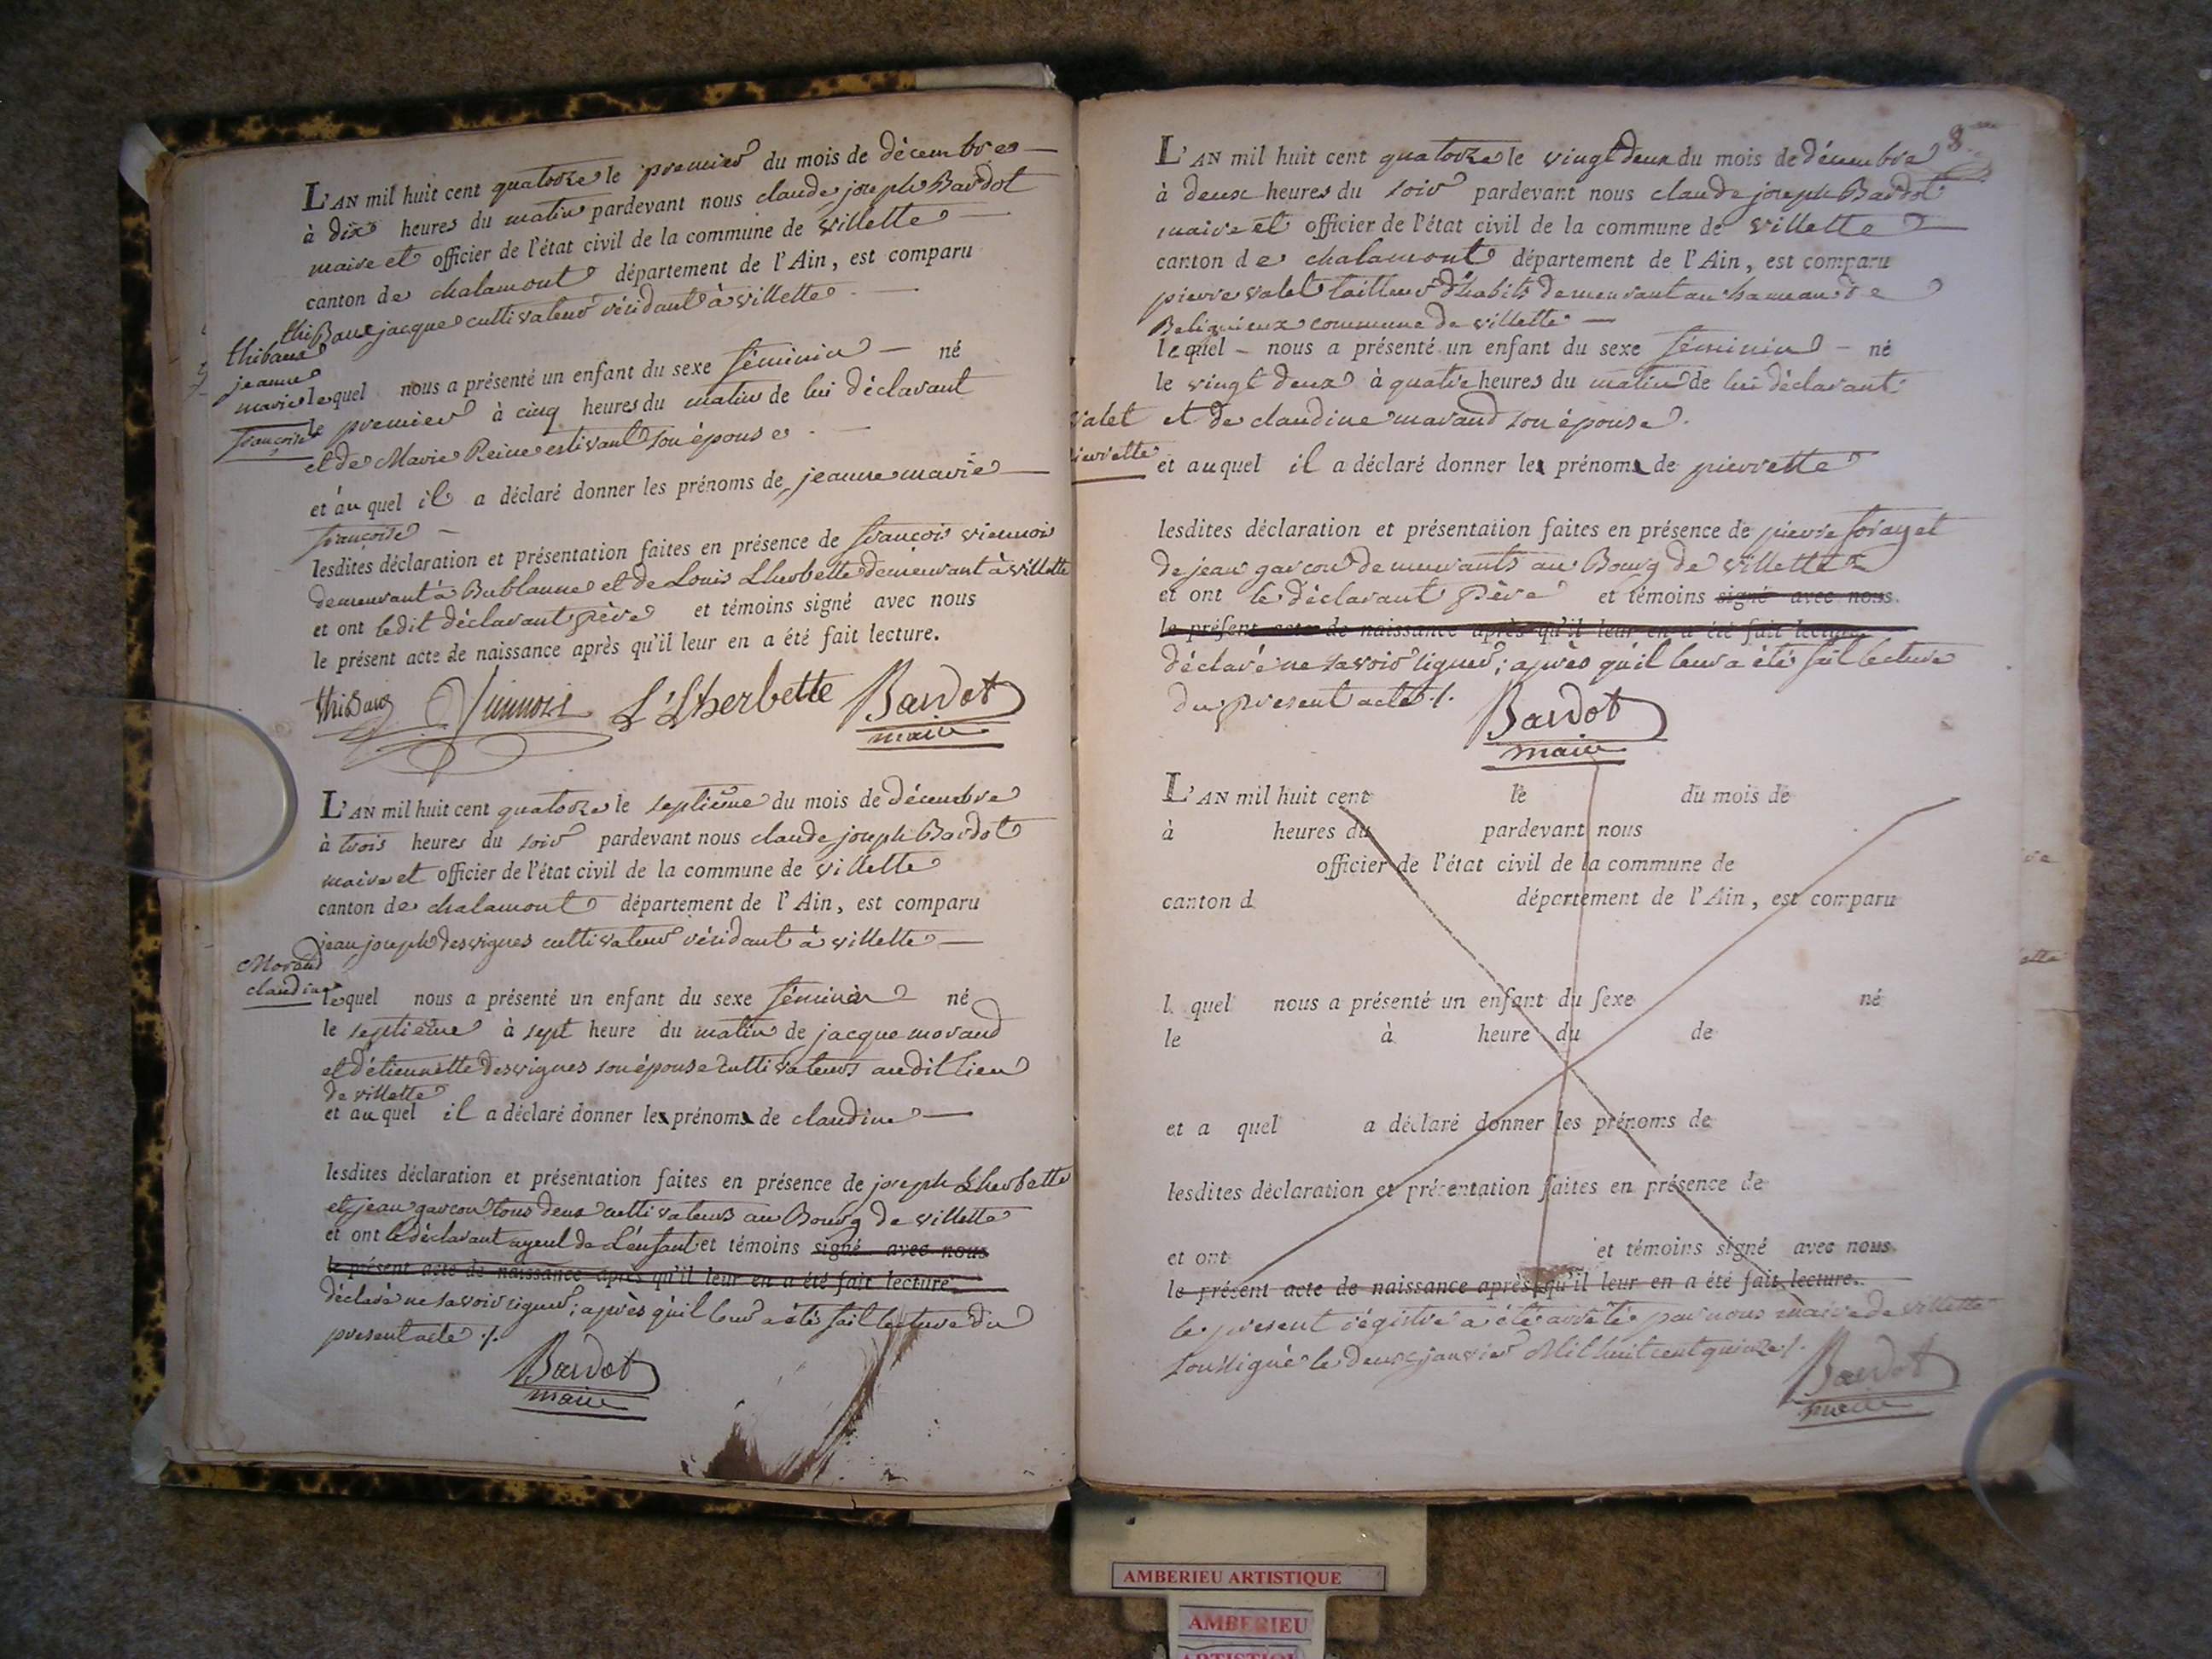 L'AN mil huit cent quatorze le premier du mois de décembre
à dix heures du matin pardevant nous claude joseph Bardot
maire et officier de l'état civil de la commune de villette
canton de chalamont département de l'Ain, est comparu
thibaux jacque cultivateur résidant à villette
thibaux
jeanne
marie
françoise
lequel nous a présenté un enfant du sexe féminin né
le premier à cinq heures du matin de lui déclarant
et de Marie Reine estivant son épouse
et au quel il a déclaré donner les prénoms de jeanne marie
françoise
lesdites déclaration et présentation faites en présence de françois viennois
demeurant à Bublanne et de Louis Lherbette demeurant à villette
et ont ledit déclarant père et témoins signé avec nous
le présent acte de naissance après qu'il leur en a été fait lecture.
thibaux Viennois L'Lherbette Bardot
maire
L'AN mil huit cent quatorze le septième du mois de décembre
à trois heures du soir pardevant nous claude joseph Bardot
maire et officier de l'état civil de la commune de villette
canton de chalamont département de l'Ain, est comparu
jean joseph desvignes cultivateur résidant à villette
Morand
claudine
lequel nous a présenté un enfant du sexe féminin né
le septième à sept heure du matin de jacque morand
et d'étiennette desvignes son épouse cultivateurs audit lieu
de villette
et au quel il a déclaré donner les prénoms de claudine
lesdites déclaration et présentation faites en présence de joseph Lherbette
et jean garcon tous deux cultivateurs au Bourg de villette
et ont le déclarant ayeul de L'enfant et témoins signé avec nous
le présent acte de naissance après qu'il leur en a été fait lecture.
déclaré ne savoir signer; après qu'il leur a été fait lecture du
present acte ./.
Bardot
maire
8
L'AN mil huit cent quatorze le vingt deux du mois de décembre
à deux heures du soir pardevant nous claude joseph Bardot
maire et officier de l'état civil de la commune de villette
canton de chalamont département de l'Ain, est comparu
pierre valet tailleur d'habits demeurant au hameau de
Beligneux commune de villette
lequel nous a présenté un enfant du sexe féminin né
le vingt deux à quatre heures du matin de lui déclarant
valet
et de claudine marand son épouse.
pierrette
et auquel il a déclaré donner les prénoms de pierrette
lesdites déclaration et présentation faites en présence de pierre foray et
de jean garcon demeurants au Bourg de villette
et ont le déclarant père et témoins signé avec nous.
le présent acte de naissance après qu'il leur en a été fait lecture.
déclaré ne savoir signer; après qu'il leur a été fait lecture
du present acte ./.
Bardot
maire
L'AN mil huit cent le du mois de
à heures du pardevant nous
officier de l'état civil de la commune de
canton d département de l'Ain, est comparu
l quel nous a présenté un enfant du sexe né
le à heure du de
et a quel a déclaré donner les prénoms de
lesdites déclaration et présentation faites en présence de
et ont et témoins signé avec nous.
le présent acte de naissance après qu'il leur en a été fait lecture.
le present régistre a été arrêté par nous maire de villette
soussigné le deux janvier Mil huit cent quinze ./.
Bardot
maire
AMBERIEU ARTISTIQUE
AMBERIEU
ARTISTIQUE